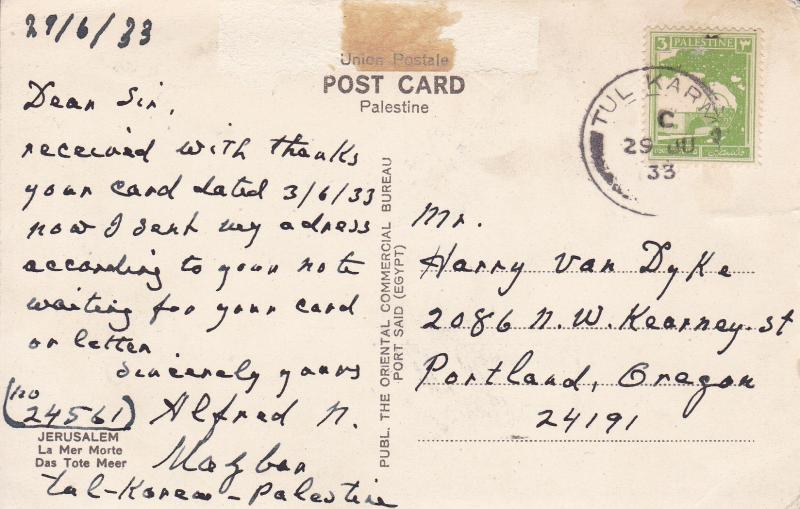 29/6/33
Union Postale
POST CARD
Palestine
Dear Sir,
received with thanks
your card dated 3/6/33
now I sent my adress
according to your note
waiting for your card
or letter
sincerely yours
(no 24561) Alfred N.
Tul-Karem - Palestine
JERUSALEM
La Mer Morte
Das Tote Meer
PUBL. THE ORIENTAL COMMERCIAL BUREAU
PORT SAID (EGYPT)
3 PALESTINE ٣
TUL KARM
C
29 JU
33
Mr.
Harry Van Dyke
2086 N.W. Kearney. st
Portland, Oregon
24191